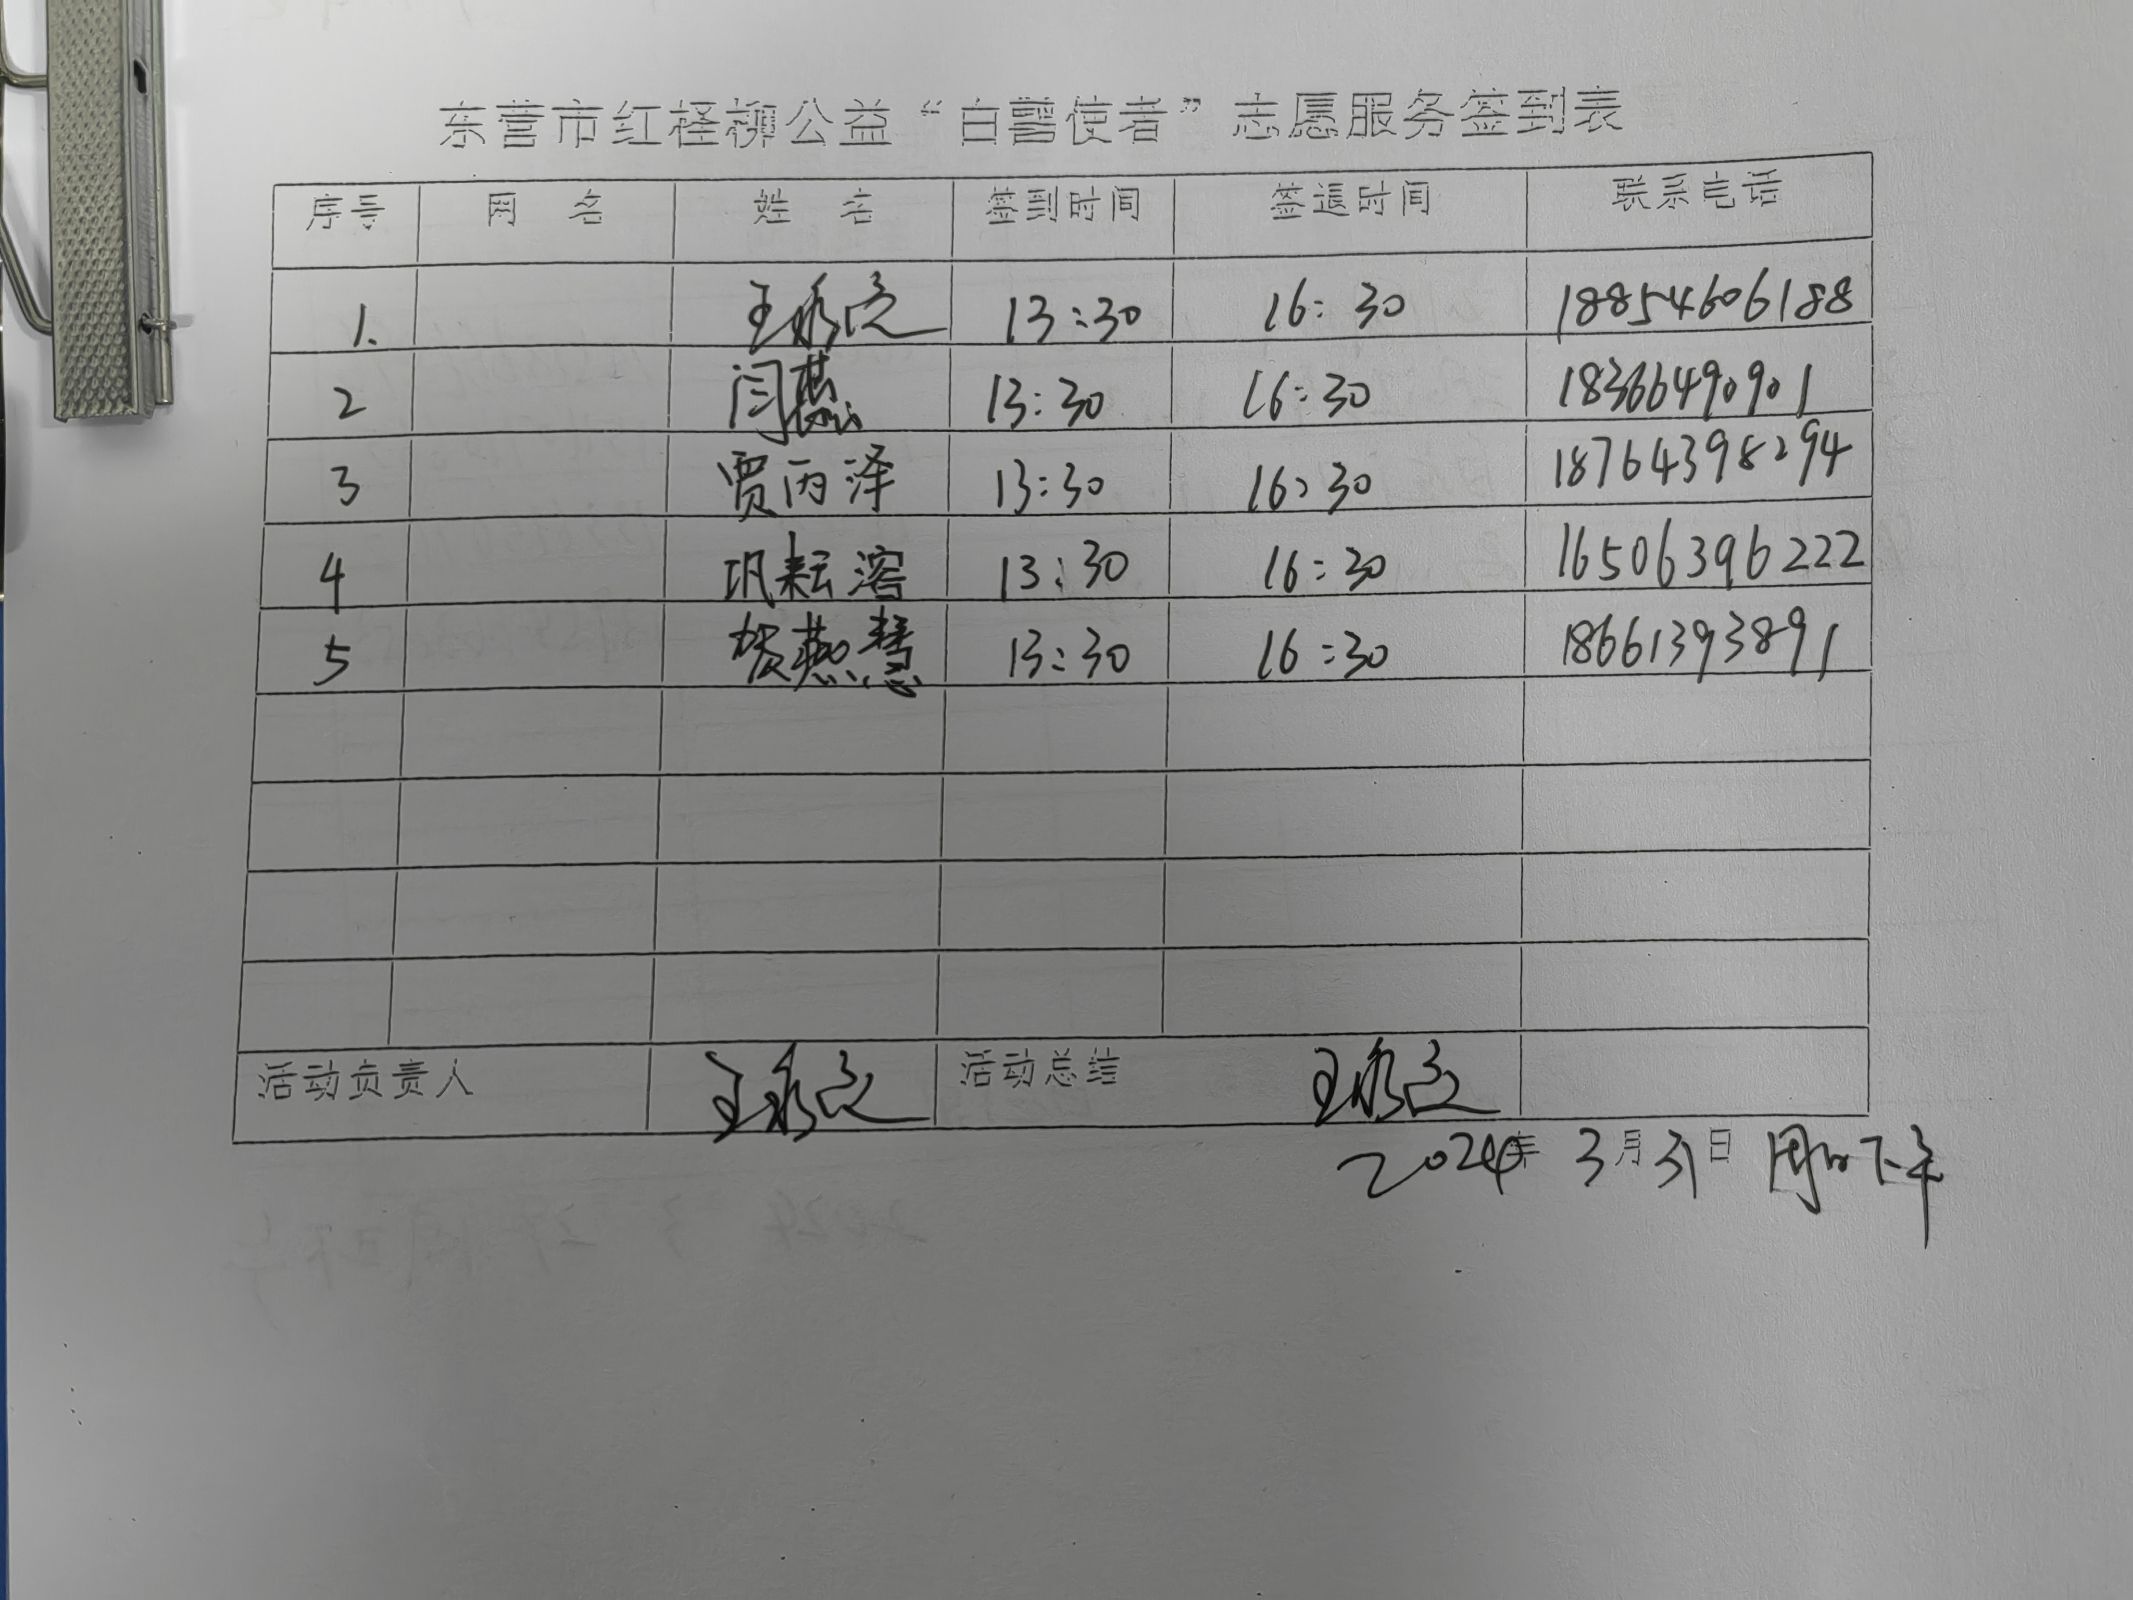 东营市红柽柳公益“白鹭使者”志愿服务签到表
序号 网名 姓名 签到时间 签退时间 联系电话
1. 王永立 13:30 16:30 18854606188
2 闫燕 13:30 16:30 18366490901
3 贾丙泽 13:30 16:30 18764398294
4 巩耘溶 13:30 16:30 16506396222
5 贺燕慧 13:30 16:30 18661393891
活动负责人 王永立 活动总结 王永立
2024年3月31日 周日下午